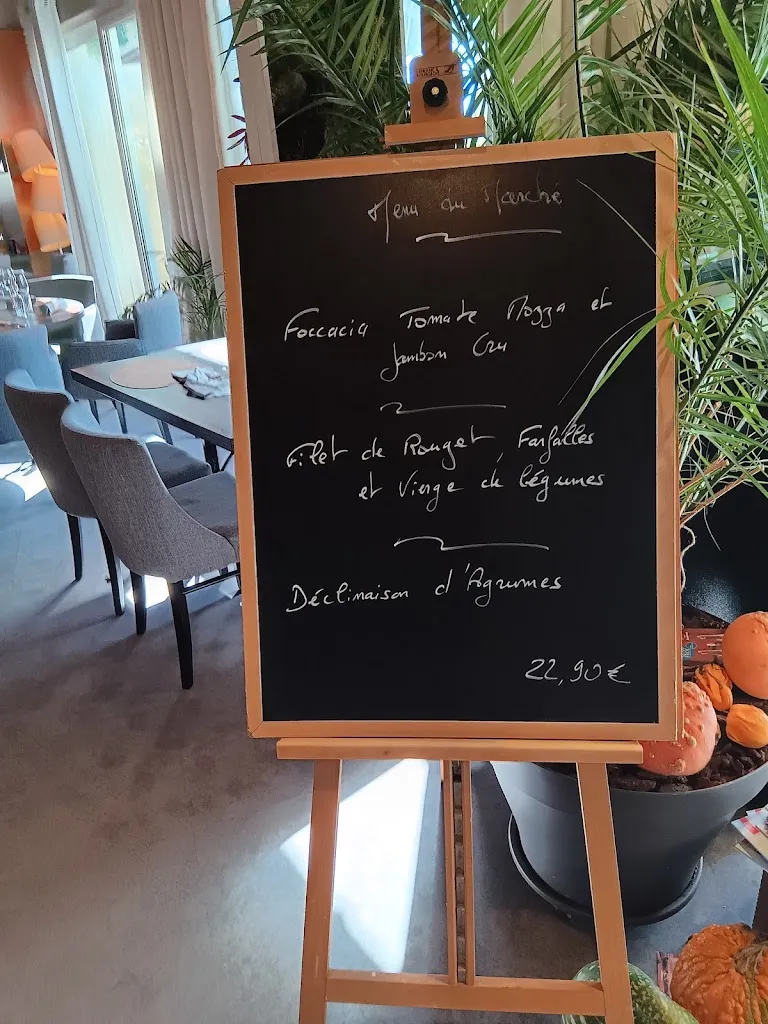 Menu du Marché
Foccacia Tomate Mozza et
Jambon Cru
Filet de Rouget, Farfalles
et Vierge de légumes
Déclinaison d'Agrumes
22,90€